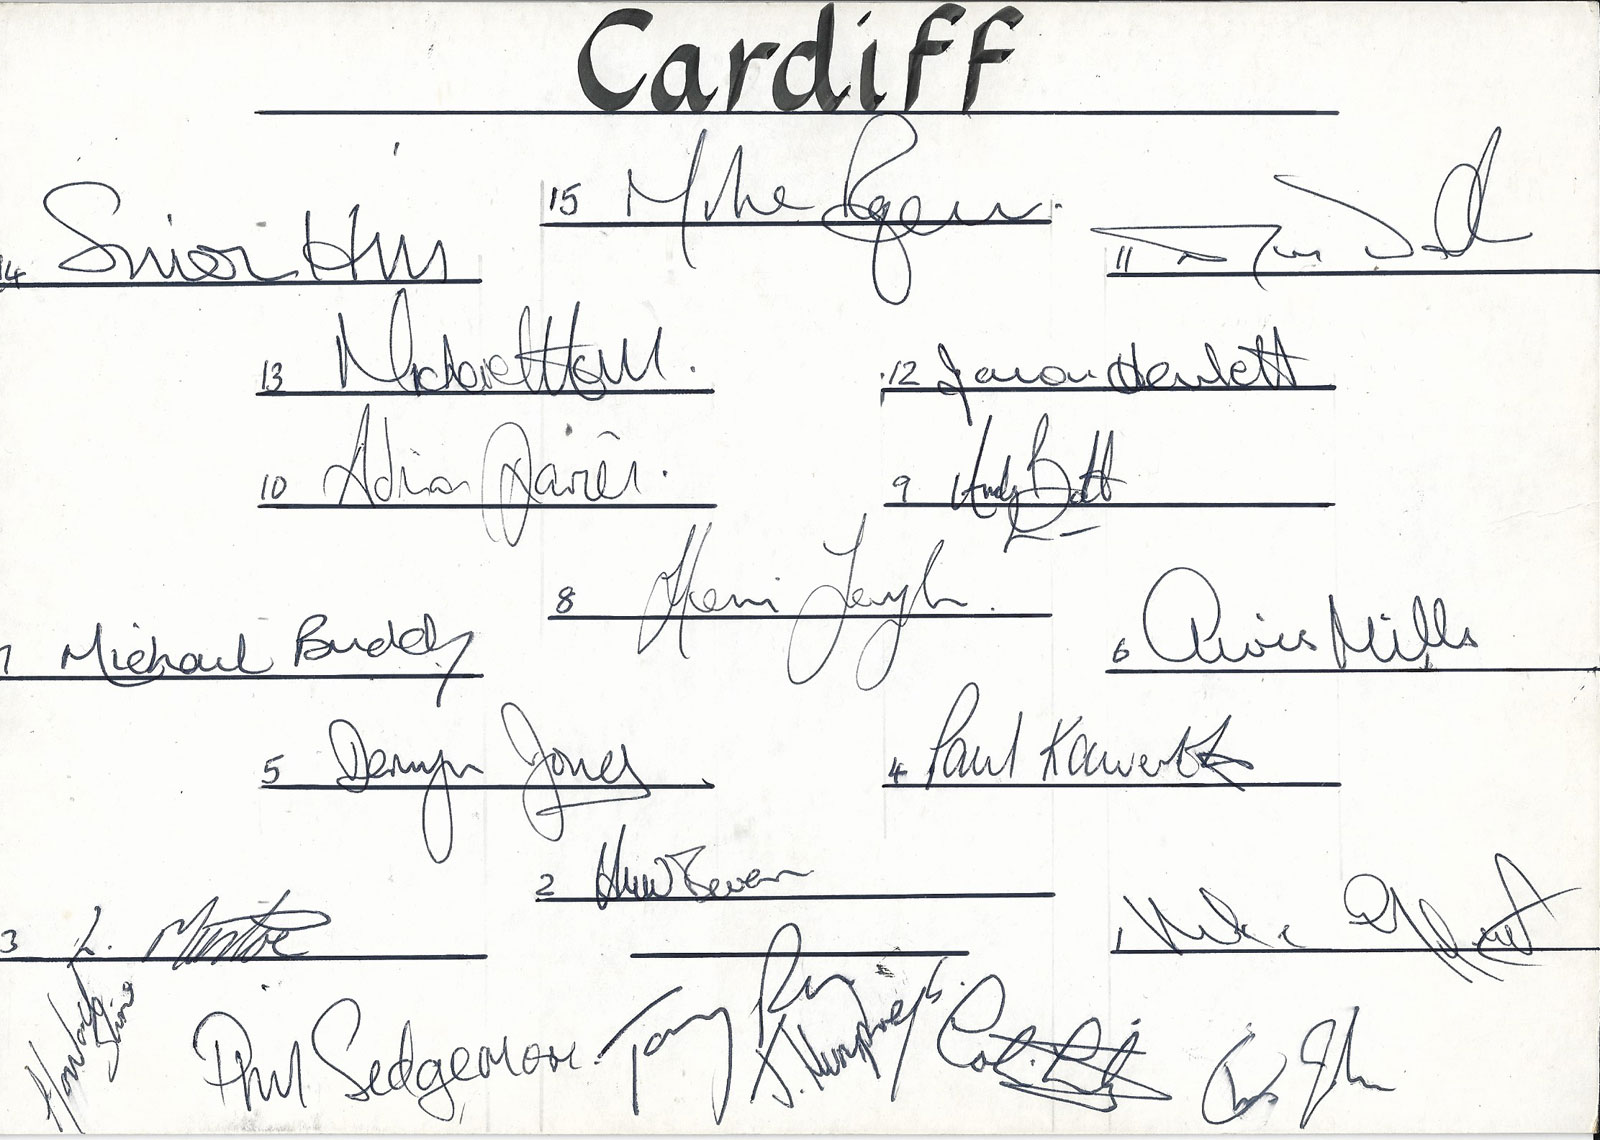 Cardiff
15 Mike Rayer
14 Simon Hill
11
13 Michael Hall
12 Jason Hewlett
10 Adrian Davies
9 Andy Booth
8 Hemi Taylor
7 Michael Budd
6 Owain
5 Derwyn Jones
4 Paul Kawulok
2 Huw Bevan
3 L. Mustoe
1 Mike Griffiths
Howard Stone
Phil Sedgemore
Tony
J. Humphreys